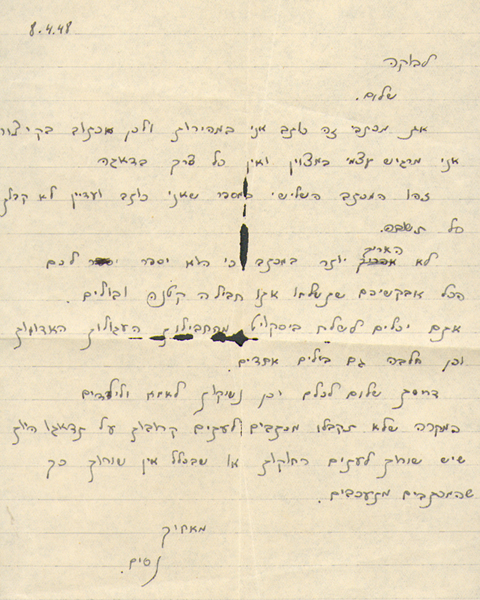 8.4.48
לבוקה
שלום.
את מכתבי זה כותב אני במהירות ולכן אכתוב בקיצור
אני מרגיש עצמי במצוין ואין כל צורך בדאגה
זהו המכתב השלישי במספר שאני כותב ועדיין לא קבלתי
כל תשובה.
לא אאריך יותר במכתב כי הוא יספר לכם
הכל אבקשיכם שתשלחו אתו חבילה קטנה ובולים.
אתם יכולים לשלוח ביסקויט מהחבילות העגולות האדומות
וכן חלבה גם בולים אחדים.
דרישת שלום לכולם וכן נשיקות לאמא ולילדים
במקרה שלא תקבלו מכתבים לעתים קרובות על תדאגו היות
שיש שיירות לעתים רחוקות או שבכלל אין שיירות כך
שהמכתבים מתעכבים.
מאחיך
נסים.